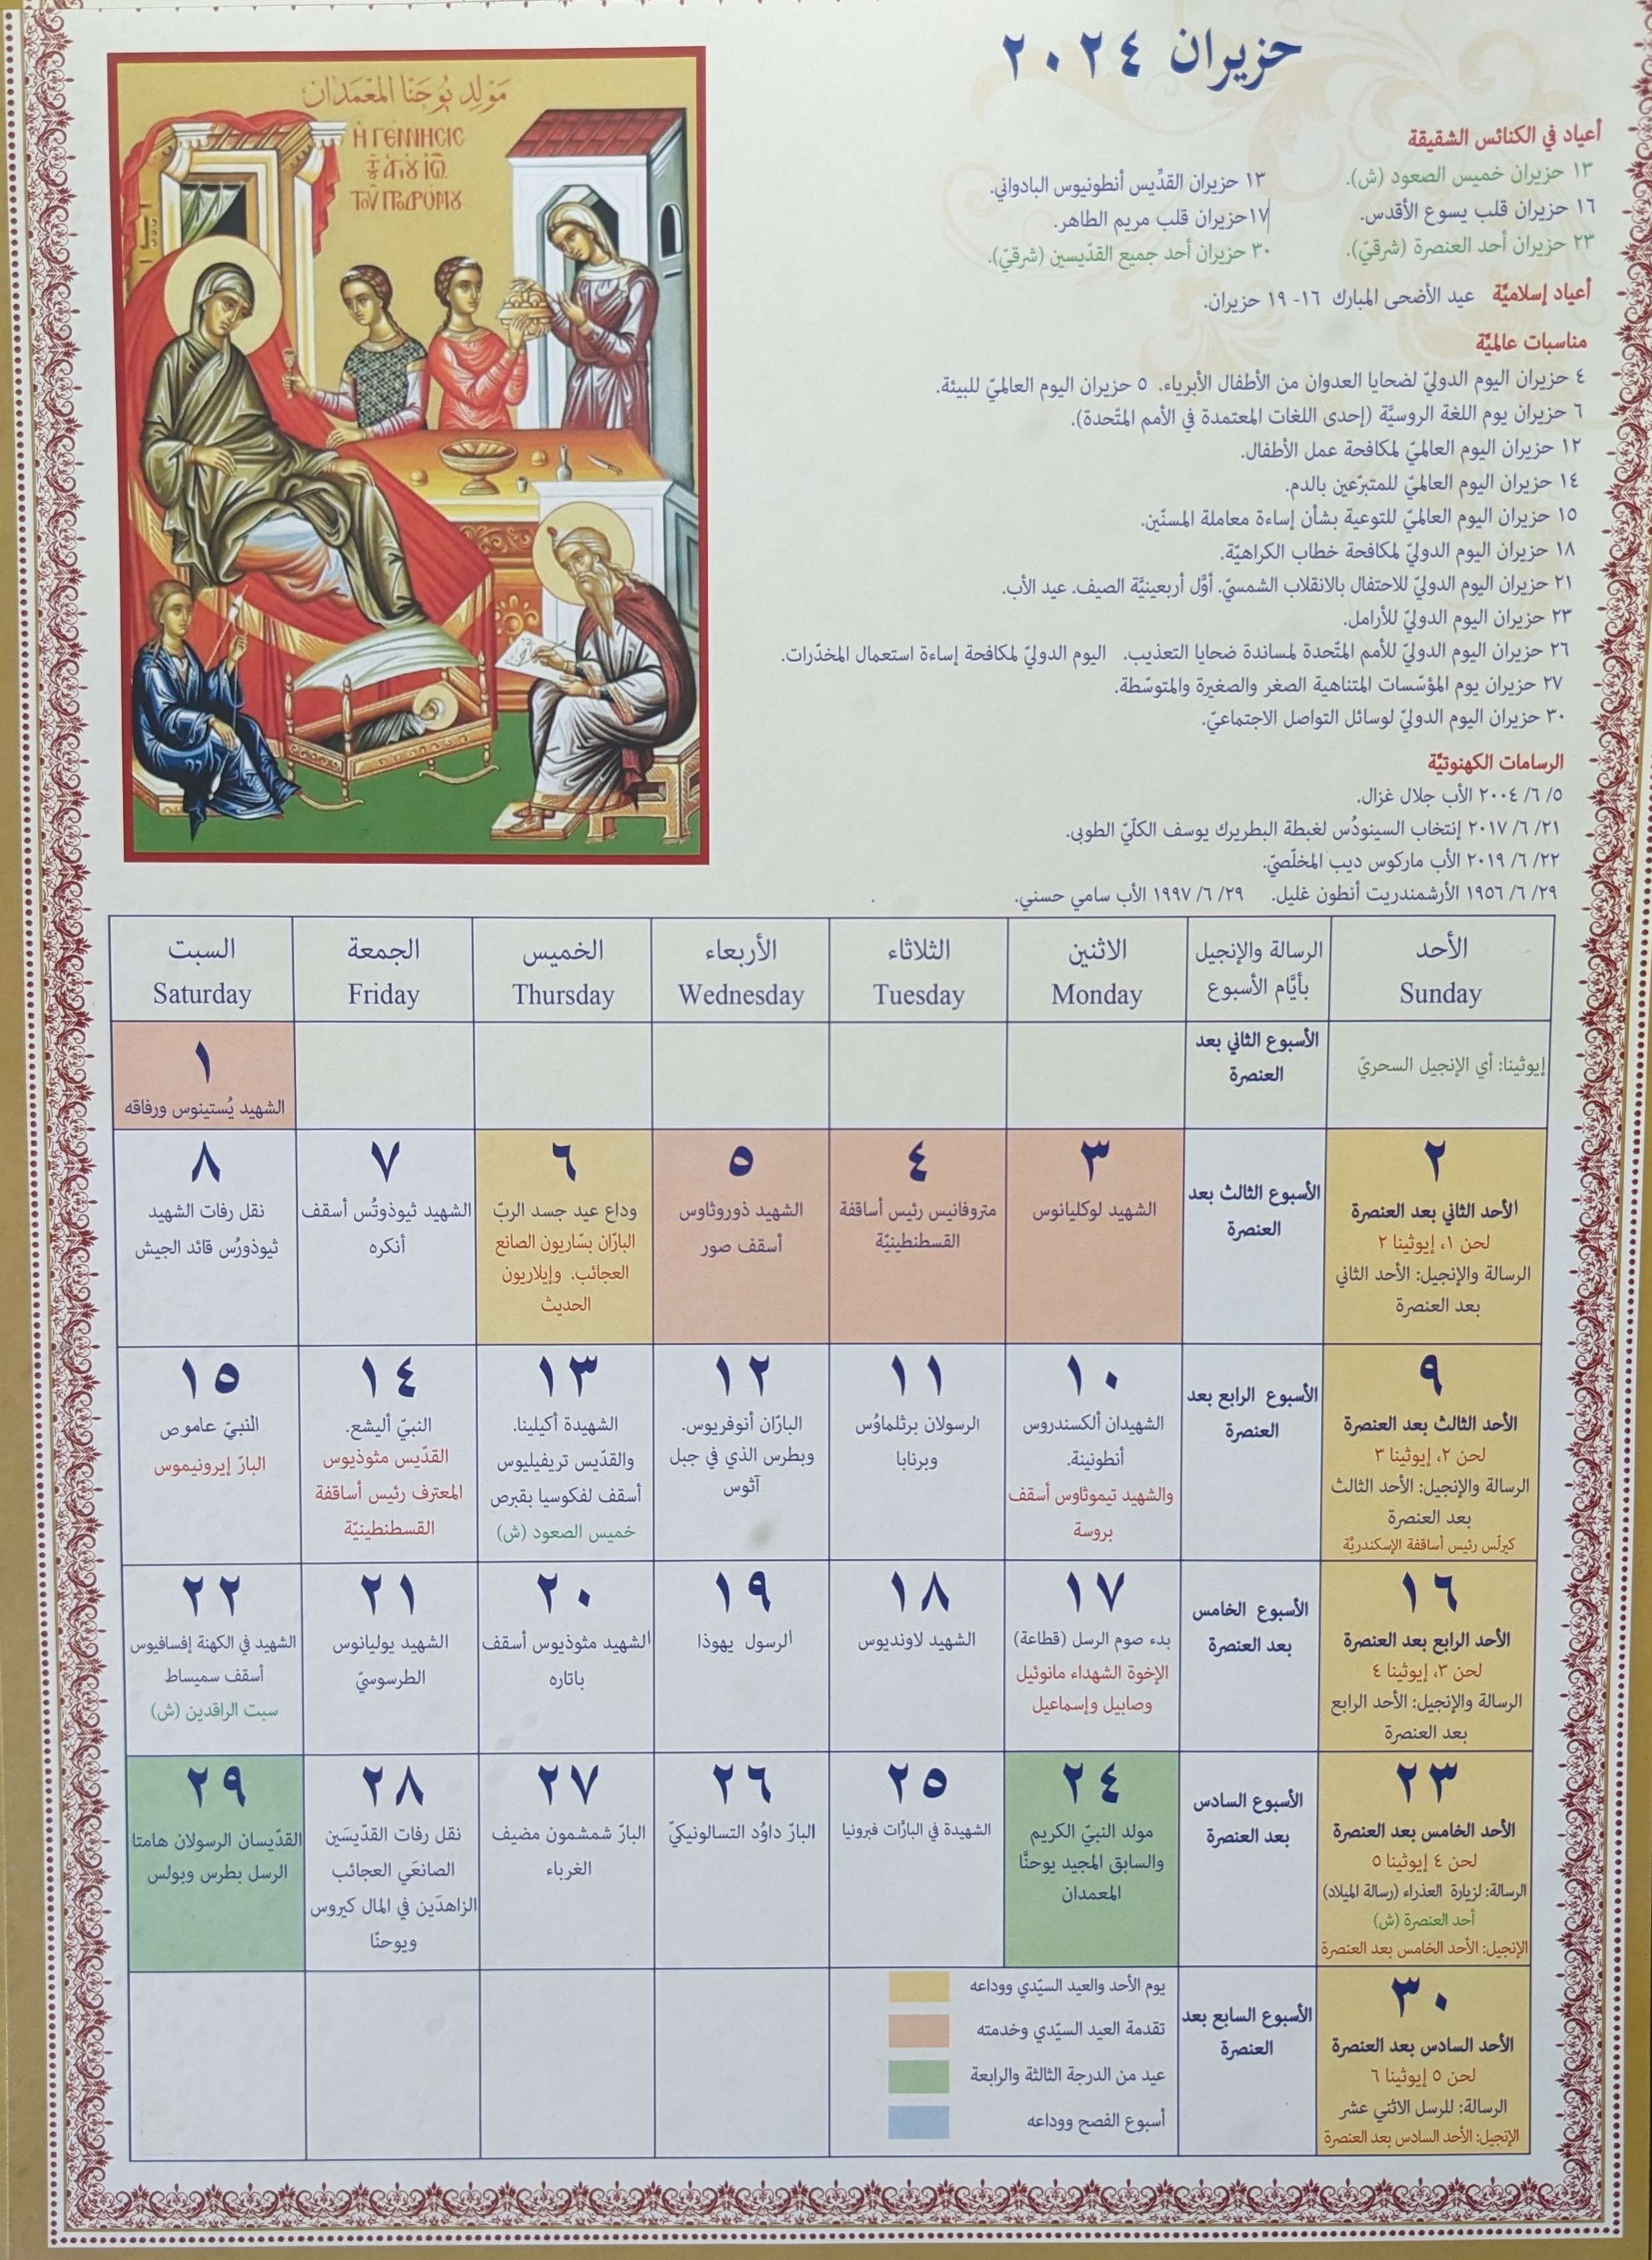 حزيران ٢٠٢٤
مَوْلِد يُوحَنَّا المَعْمَدَان
Ἡ ΓΈΝΝΗCΙC
ΤΟΥ ἉΓΊΟΥ ἸΩ.
ΤΟΥ͂ ΠΡΟΔΡΌΜΟΥ
أعياد في الكنائس الشقيقة
١٣ حزيران خميس الصعود (ش). ١٣ حزيران القدِّيس أنطونيوس البادواني.
١٦ حزيران قلب يسوع الأقدس. ١٧حزيران قلب مريم الطاهر.
٢٣ حزيران أحد العنصرة (شرقيّ). ٣٠ حزيران أحد جميع القدّيسين (شرقيّ).
أعياد إسلاميَّة عيد الأضحى المبارك ١٦- ١٩ حزيران.
مناسبات عالميَّة
٤ حزيران اليوم الدوليّ لضحايا العدوان من الأطفال الأبرياء. ٥ حزيران اليوم العالميّ للبيئة.
٦ حزيران يوم اللغة الروسيَّة (إحدى اللغات المعتمدة في الأمم المتّحدة).
١٢ حزيران اليوم العالميّ لمكافحة عمل الأطفال.
١٤ حزيران اليوم العالميّ للمتبرّعين بالدم.
١٥ حزيران اليوم العالميّ للتوعية بشأن إساءة معاملة المسنّين.
١٨ حزيران اليوم الدوليّ لمكافحة خطاب الكراهيّة.
٢١ حزيران اليوم الدوليّ للاحتفال بالانقلاب الشمسيّ. أوَّل أربعينيَّة الصيف. عيد الأب.
٢٣ حزيران اليوم الدوليّ للأرامل.
٢٦ حزيران اليوم الدوليّ للأمم المتّحدة لمساندة ضحايا التعذيب. اليوم الدوليّ لمكافحة إساءة استعمال المخدّرات.
٢٧ حزيران يوم المؤسّسات المتناهية الصغر والصغيرة والمتوسّطة.
٣٠ حزيران اليوم الدوليّ لوسائل التواصل الاجتماعيّ.
الرسامات الكهنوتيَّة
٥/ ٦/ ٢٠٠٤ الأب جلال غزال.
٢١/ ٦/ ٢٠١٧ إنتخاب السينودُس لغبطة البطريرك يوسف الكلّيّ الطوبى.
٢٢/ ٦/ ٢٠١٩ الأب ماركوس ديب المخلّصيّ.
٢٩/ ٦/ ١٩٥٦ الأرشمندريت أنطون غليل. ٢٩/ ٦/ ١٩٩٧ الأب سامي حسني.
الأحد
Sunday
الرسالة والإنجيل
بأيَّام الأسبوع
الاثنين
Monday
الثلاثاء
Tuesday
الأربعاء
Wednesday
الخميس
Thursday
الجمعة
Friday
السبت
Saturday
إيوثينا: أي الإنجيل السحريّ
الأسبوع الثاني بعد
العنصرة
١
الشهيد يُستينوس ورفاقه
٢
الأحد الثاني بعد العنصرة
لحن ١، إيوثينا ٢
الرسالة والإنجيل: الأحد الثاني
بعد العنصرة
الأسبوع الثالث بعد
العنصرة
٣
الشهيد لوكليانوس
٤
متروفانيس رئيس أساقفة
القسطنطينيّة
٥
الشهيد ذوروثاوس
أسقف صور
٦
وداع عيد جسد الربّ
البارّان بسّاريون الصانع
العجائب. وإيلاريون
الحديث
٧
الشهيد ثيوذوتُس أسقف
أنكره
٨
نقل رفات الشهيد
ثيوذورُس قائد الجيش
٩
الأحد الثالث بعد العنصرة
لحن ٢، إيوثينا ٣
الرسالة والإنجيل: الأحد الثالث
بعد العنصرة
كيرلّس رئيس أساقفة الإسكندريَّة
الأسبوع الرابع بعد
العنصرة
١٠
الشهيدان ألكسندروس
أنطونينة.
والشهيد تيموثاوس أسقف
بروسة
١١
الرسولان برثلماوُس
وبرنابا
١٢
البارّان أنوفريوس.
وبطرس الذي في جبل
آثوس
١٣
الشهيدة أكيلينا.
والقدّيس تريفيليوس
أسقف لفكوسيا بقبرص
خميس الصعود (ش)
١٤
النبيّ أليشع.
القدّيس مثوذيوس
المعترف رئيس أساقفة
القسطنطينيّة
١٥
النبيّ عاموص
البارّ إيرونيموس
١٦
الأحد الرابع بعد العنصرة
لحن ٣، إيوثينا ٤
الرسالة والإنجيل: الأحد الرابع
بعد العنصرة
الأسبوع الخامس
بعد العنصرة
١٧
بدء صوم الرسل (قطاعة)
الإخوة الشهداء مانوئيل
وصابيل وإسماعيل
١٨
الشهيد لاونديوس
١٩
الرسول يهوذا
٢٠
الشهيد مثوذيوس أسقف
باتاره
٢١
الشهيد يوليانوس
الطرسوسيّ
٢٢
الشهيد في الكهنة إفسافيوس
أسقف سميساط
سبت الراقدين (ش)
٢٣
الأحد الخامس بعد العنصرة
لحن ٤ إيوثينا ٥
الرسالة: لزيارة العذراء (رسالة الميلاد)
أحد العنصرة (ش)
الإنجيل: الأحد الخامس بعد العنصرة
الأسبوع السادس
بعد العنصرة
٢٤
مولد النبيّ الكريم
والسابق المجيد يوحنَّا
المعمدان
٢٥
الشهيدة في البارّات فبرونيا
٢٦
البارّ داوُد التسالونيكيّ
٢٧
البارّ شمشمون مضيف
الغرباء
٢٨
نقل رفات القدّيسَين
الصانعَي العجائب
الزاهدَين في المال كيروس
ويوحنّا
٢٩
القدّيسان الرسولان هامتا
الرسل بطرس وبولس
٣٠
الأحد السادس بعد العنصرة
لحن ٥ إيوثينا ٦
الرسالة: للرسل الاثني عشر
الإنجيل: الأحد السادس بعد العنصرة
الأسبوع السابع بعد
العنصرة
يوم الأحد والعيد السيّدي ووداعه
تقدمة العيد السيّدي وخدمته
عيد من الدرجة الثالثة والرابعة
أسبوع الفصح ووداعه